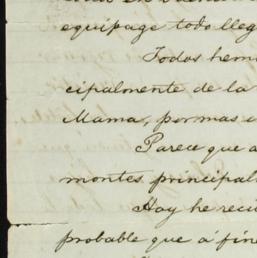 equipage todo lleg
Todos hem
cipalmente de la
Mama, por mas
Parece que a
montes principal
Hoy he reci
probable que á fin